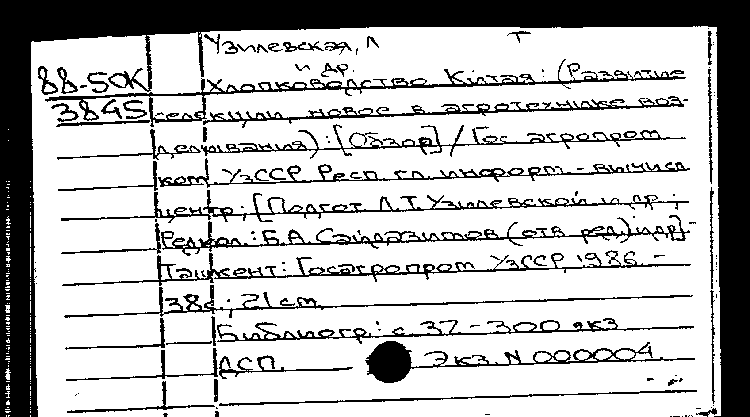 Узилевская, Л Т
и др.
88-50К Хлопководство Китая: (Развитие
3845 селекции, новое в агротехнике воз-
делывания): [Обзор] / Гос агропром
ком. УзССР Респ гл. информ.-вычисл
центр; [Подгот Л.Т. Узилевской и др;
Редкол.: Б.А. Сайдазимов (отв ред.) и др]-
Ташкент: Госагропром УзССР, 1986 -
38с.; 21 cm
Библиогр.: с 37 - 300 экз
ДСП. Экз. N 000004.